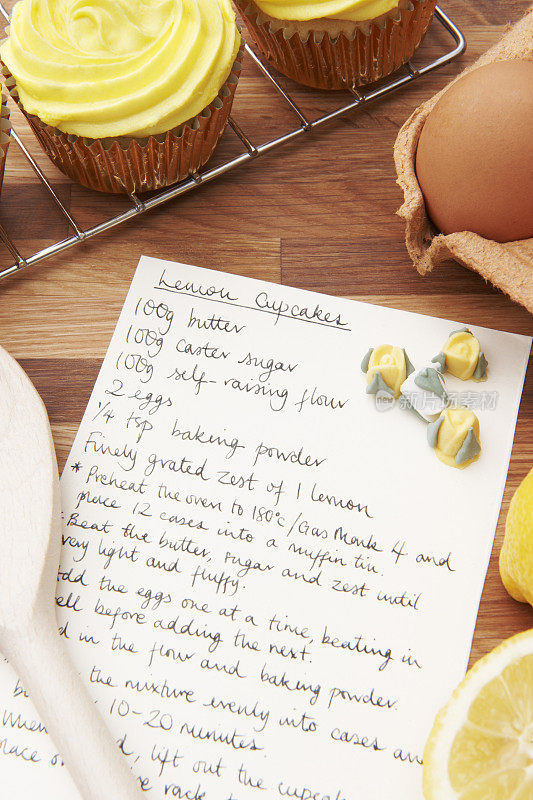 Lemon Cupcakes
100g butter
100g caster sugar
100g self-raising flour
2 eggs
1/4 tsp baking powder
Finely grated zest of 1 lemon
* Preheat the oven to 180°C/Gas Mark 4 and
place 12 cases into a muffin tin.
* Beat the butter, sugar and zest until
very light and fluffy.
Add the eggs one at a time, beating in
well before adding the next.
in the flour and baking powder.
the mixture evenly into cases and
10-20 minutes.
When, lift out the
place on rack
iStock